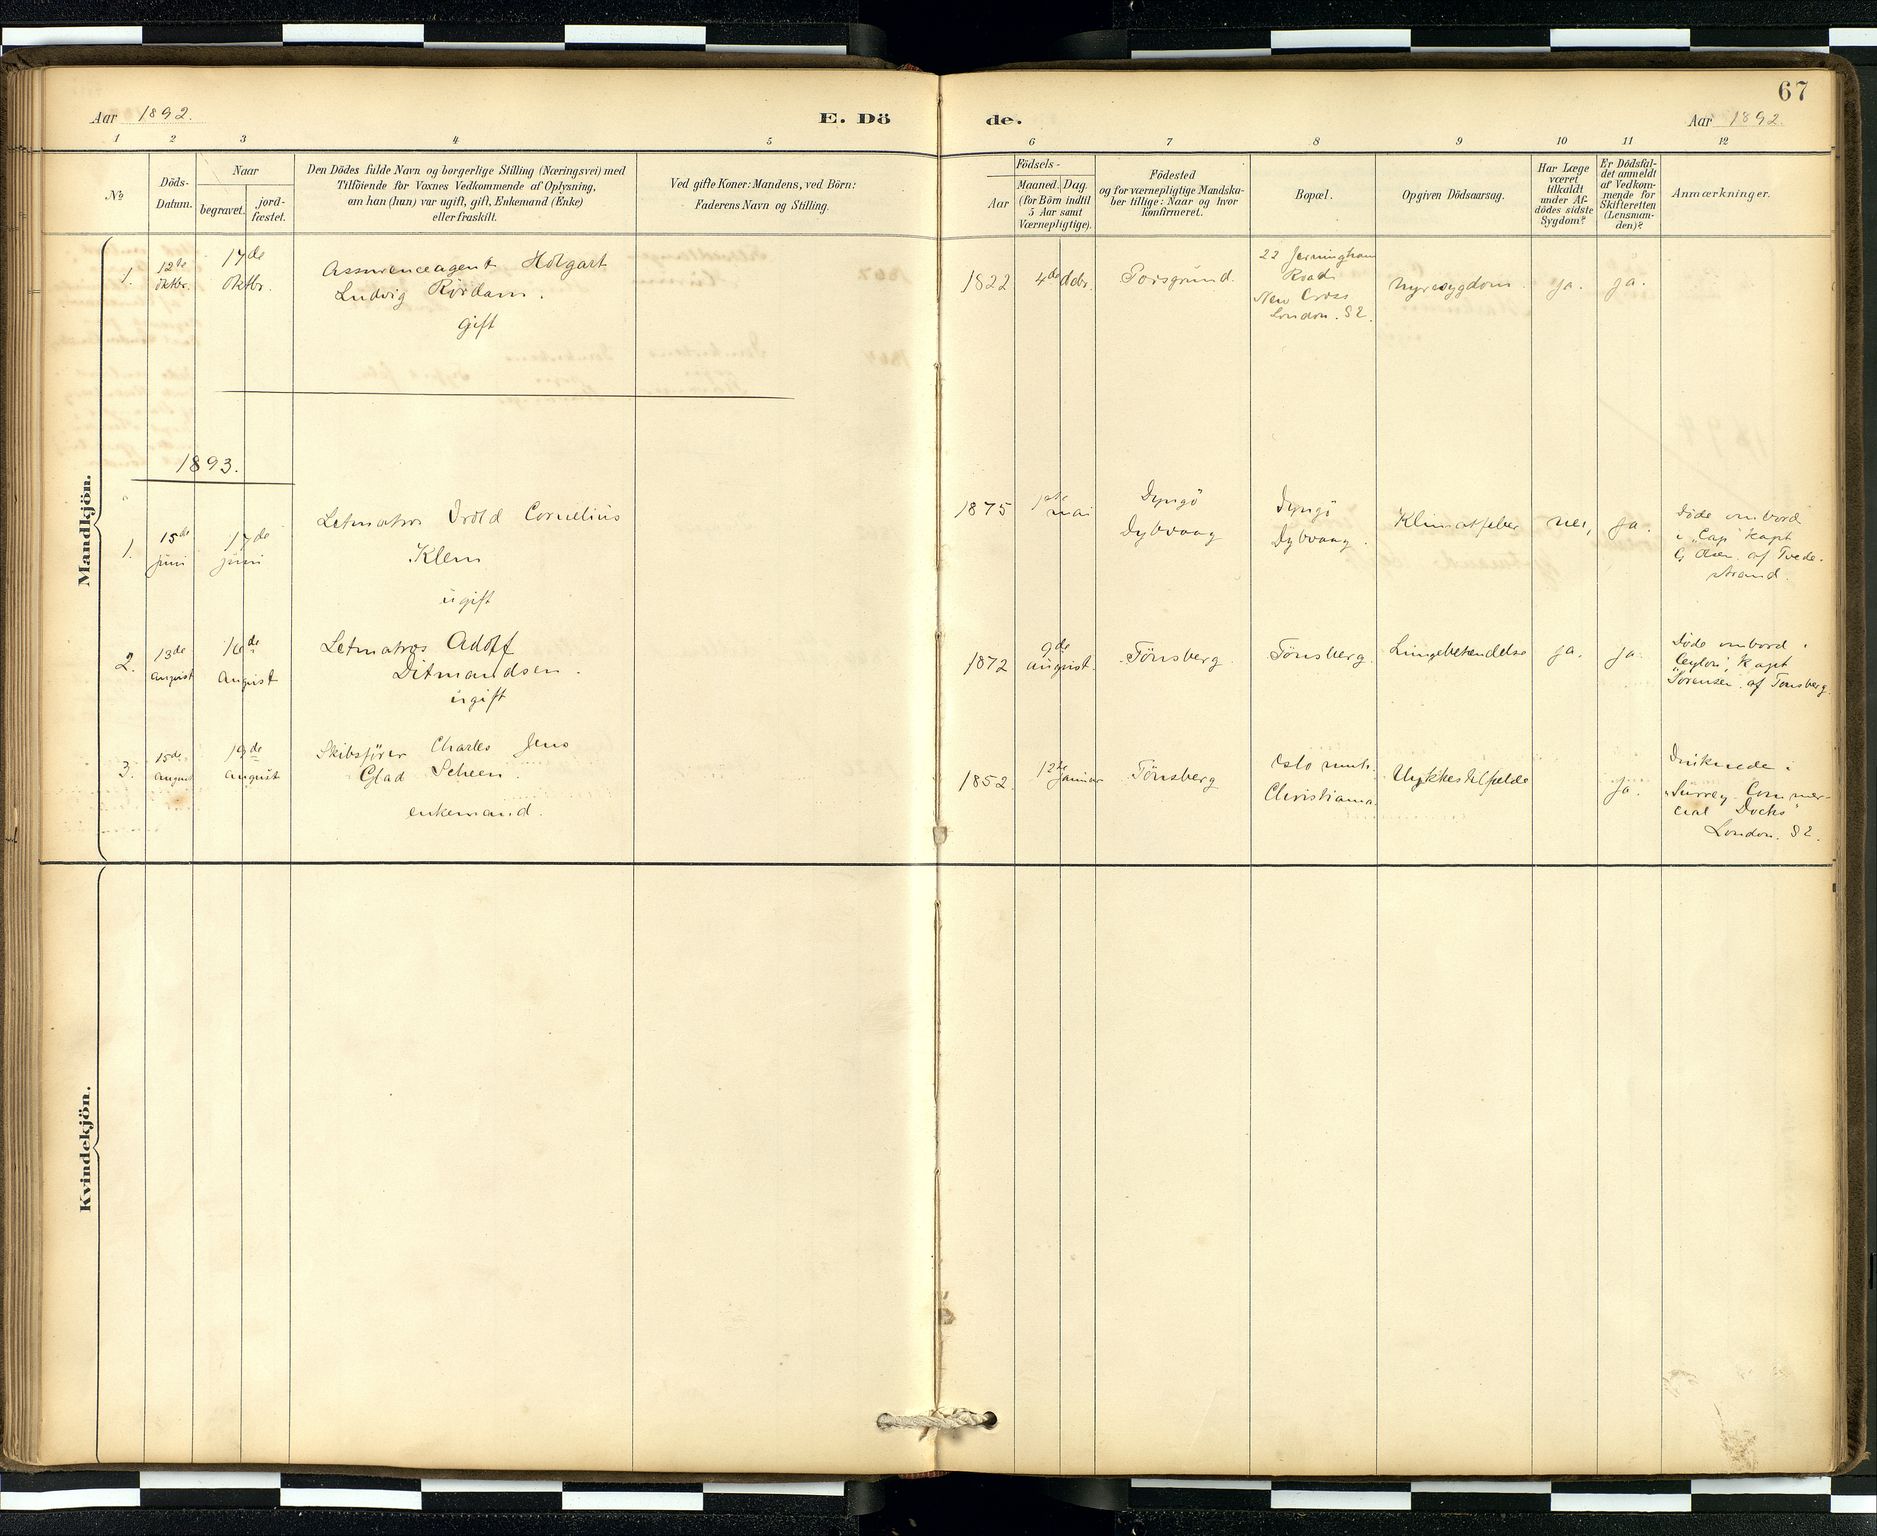 Aar 1892.
E. Dö
de.
67
Aar 1892.
1 2 3 4 5 6 7 8 9 10 11 12
No
Döds-
Datum.
Naar
begravet.
jord-
fæstet.
Den Dödes fulde Navn og borgerlige Stilling (Næringsvei) med
Tilföiende for Voxnes Vedkommende af Oplysning,
om han (hun) var ugift, gift, Enkemand (Enke)
eller fraskilt.
Ved gifte Koner: Mandens, ved Börn:
Faderens Navn og Stilling.
Födsels-
Aar
Maaned. Dag.
(for Börn indtil
5 Aar samt
Værnepligtige).
Födested
og for værnepligtige Mandska-
ber tillige: Naar og hvor
konfirmeret.
Bopæl.
Opgiven Dödsaarsag.
Har Læge
været
tilkaldt
under Af-
dödes sidste
Sygdom?
Er Dödsfal-
det anmeldt
af Vedkom-
mende for
Skifteretten
(Lensman-
den)?
Anmærkninger.
Mandkjön.
1.
12te
oktbr.
17de
oktbr.
Assuranceagent Holgart
Ludvig Rørdam.
gift
1822
4de dcbr.
Porsgrund.
22 Jerningham
Road
New Cross
London. S E.
Nyresygdom.
ja.
ja.
1893.
1.
15de
juni
17de
juni
Letmatros Cornelius
Klem
ugift
1875
1ste
mai
Dyngö
Dybvaag
Dyngö
Dybvaag.
Klimatfeber
nei,
ja.
Døde ombord
i "Cap" Kapt
G Olsen. af Tvede-
strand.
2.
13de
august
16de
August
Letmatros Adolf
Ditmandsen.
ugift
1872
9de
august.
Tönsberg.
Tönsberg.
Lungebetendelse
ja.
ja.
Døde ombord i
"Ceylon", Kapt
Sørensen. af Tønsberg.
3.
15de
august
19de
august
Skibsfører Charles Jens
Glad Scheen.
enkemand.
1852.
12te
januar
Tönsberg
Oslo
Christiania.
Ulykkestilfælde
ja.
Druknede i
"Surrey Commer-
cial Docks"
London. S E.
Kvindekjön.